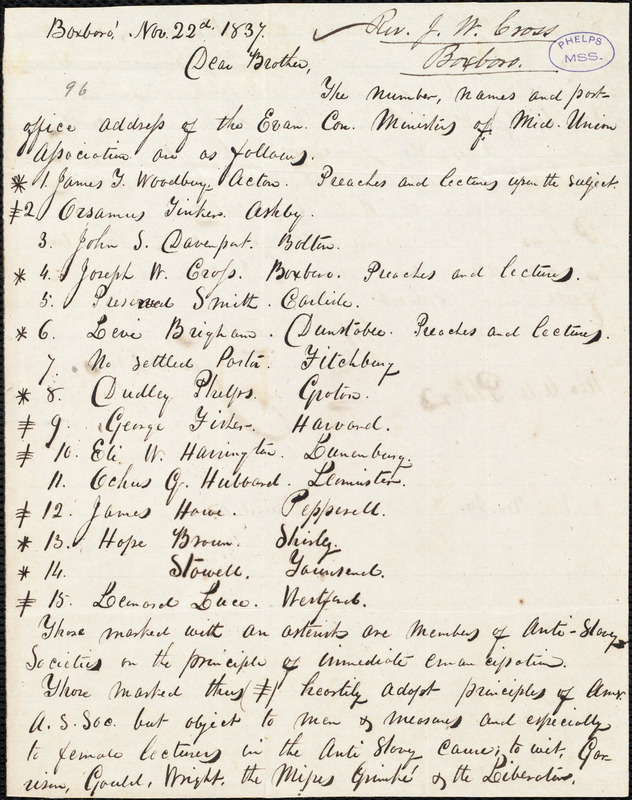 Boxboro' Nov. 22d. 1837.
Rev. J. W. Cross
Boxboro.
PHELPS
MSS.
Dear Brother,
96
The number, names and post-
office address of the Evan. Con. Ministers of Mid. Union
Association are as follows.
* 1. James T. Woodbury. Acton. Preaches and lectures upon the subject.
‡ 2. Orsamus Tinker. Ashby.
3. John S. Davenport. Bolton.
* 4. Joseph W. Cross. Boxboro. Preaches and lectures.
5. Preserved Smith. Carlisle.
* 6. Levi Brigham. Dunstable. Preaches and lectures.
7. No settled Pastor. Fitchburg
* 8. Dudley Phelps. Groton.
‡ 9. George Fisher. Harvard.
‡ 10. Eli W. Harrington. Lunenburg.
11. Ochus G. Hubbard. Leominster.
‡ 12. James Howe. Pepperell.
* 13. Hope Brown. Shirley.
* 14. Stowell. Townsend.
‡ 15. Leonard Luce. Westford.
Those marked with an asterisk are members of Anti-Slavy
Societies on the principle of immediate emancipation.
Those marked thus (‡) heartily adopt principles of Amr.
A. S. Soc. but object to men & measures and especially
to female lecturers in the Anti Slavy cause; to wit, Gar-
rison, Gould, Wright, the Misses Grimké & the Liberator.